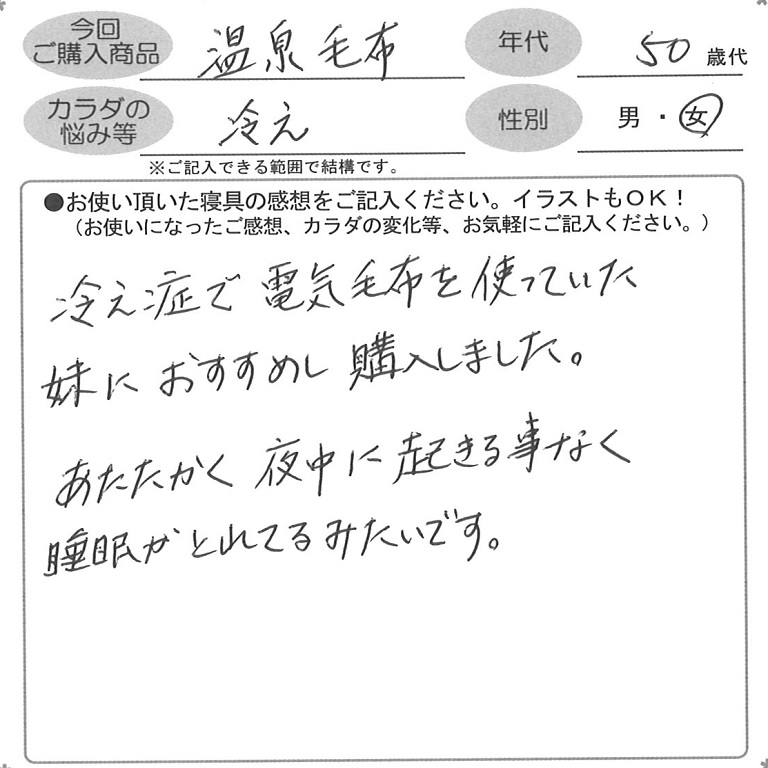 今回
ご購入商品 温泉毛布 年代 50歳代
カラダの
悩み等 冷え 性別 男・女
※ご記入できる範囲で結構です。
●お使い頂いた寝具の感想をご記入ください。イラストもOK!
(お使いになったご感想、カラダの変化等、お気軽にご記入ください。)
冷え症で電気毛布を使っていた
妹におすすめし購入しました。
あたたかく夜中に起きる事なく
睡眠がとれてるみたいです。